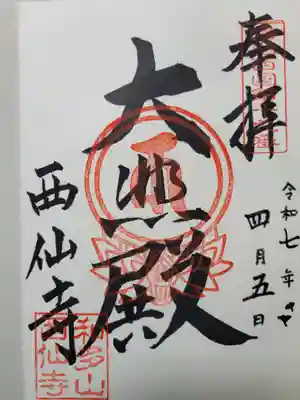 奉拝
令和七年
四月五日
大悲殿
西仙寺
西仙寺